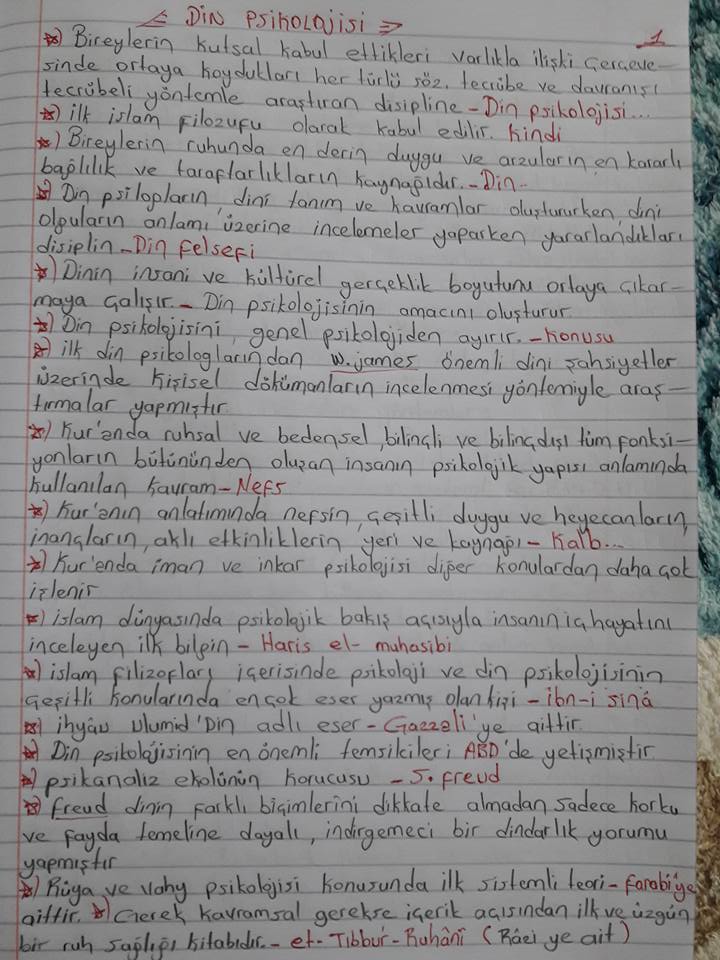 Din Psikolojisi
1
*) Bireylerin kutsal kabul ettikleri varlıkla ilişki çerçeve-
sinde ortaya koydukları her türlü söz, tecrübe ve davranışı
tecrübeli yöntemle araştıran disipline - Din psikolojisi...
*) ilk islam filozufu olarak kabul edilir. Kindi
*) Bireylerin ruhunda en derin duygu ve arzuların, en kararlı
bağlılık ve taraftarlıkların kaynağıdır. - Din..
*) Din psilogların, dini tanım ve kavramlar oluştururken, dini
olguların anlamı üzerine incelemeler yaparken yararlandıkları
disiplin - Din felsefi
*) Dinin insani ve kültürel gerçeklik boyutunu ortaya çıkar-
maya çalışır. - Din psikolojisinin amacını oluşturur
*) Din psikolojisini, genel psikolojiden ayırır. - Konusu
*) ilk din psikologlarından W. james önemli dini şahsiyetler
üzerinde kişisel dökümanların incelenmesi yöntemiyle araş-
tırmalar yapmıştır
*) Kur'anda ruhsal ve bedensel, bilinçli ve bilinçdışı tüm fonksi-
yonların bütününden oluşan insanın psikolojik yapısı anlamında
kullanılan kavram - Nefs
*) Kur'anın anlatımında nefsin, çeşitli duygu ve heyecanların,
inançların, aklı etkinliklerin yeri ve kaynağı - Kalb...
*) Kur'anda iman ve inkar psikolojisi diğer konulardan daha çok
işlenir
*) islam dünyasında psikolojik bakış açısıyla insanın iç hayatını
inceleyen ilk bilgin - Haris el- muhasibi
*) islam filizofları içerisinde psikolaji ve din psikolojisinin
çeşitli konularında en çok eser yazmış olan kişi - ibn-i sinâ
*) ihyâu ulumid'Din adlı eser - Gazzali'ye aittir.
*) Din psikolojisinin en önemli temsilcileri ABD'de yetişmiştir
*) psikanaliz ekolünün korucusu - S. freud
*) freud dinin farklı biçimlerini dikkate almadan sadece korku
ve fayda temeline dayalı, indirgemeci bir dindarlık yorumu
yapmıştır
*) Rüya ve vahy psikolojisi konusunda ilk sistemli teori - farabi'ye
aittir. *) Gerek kavramsal gerekse içerik açısından ilk ve üzgün
bir ruh sağlığı kitabıdır. - et- Tıbbur- Ruhânî (Râzi ye ait)